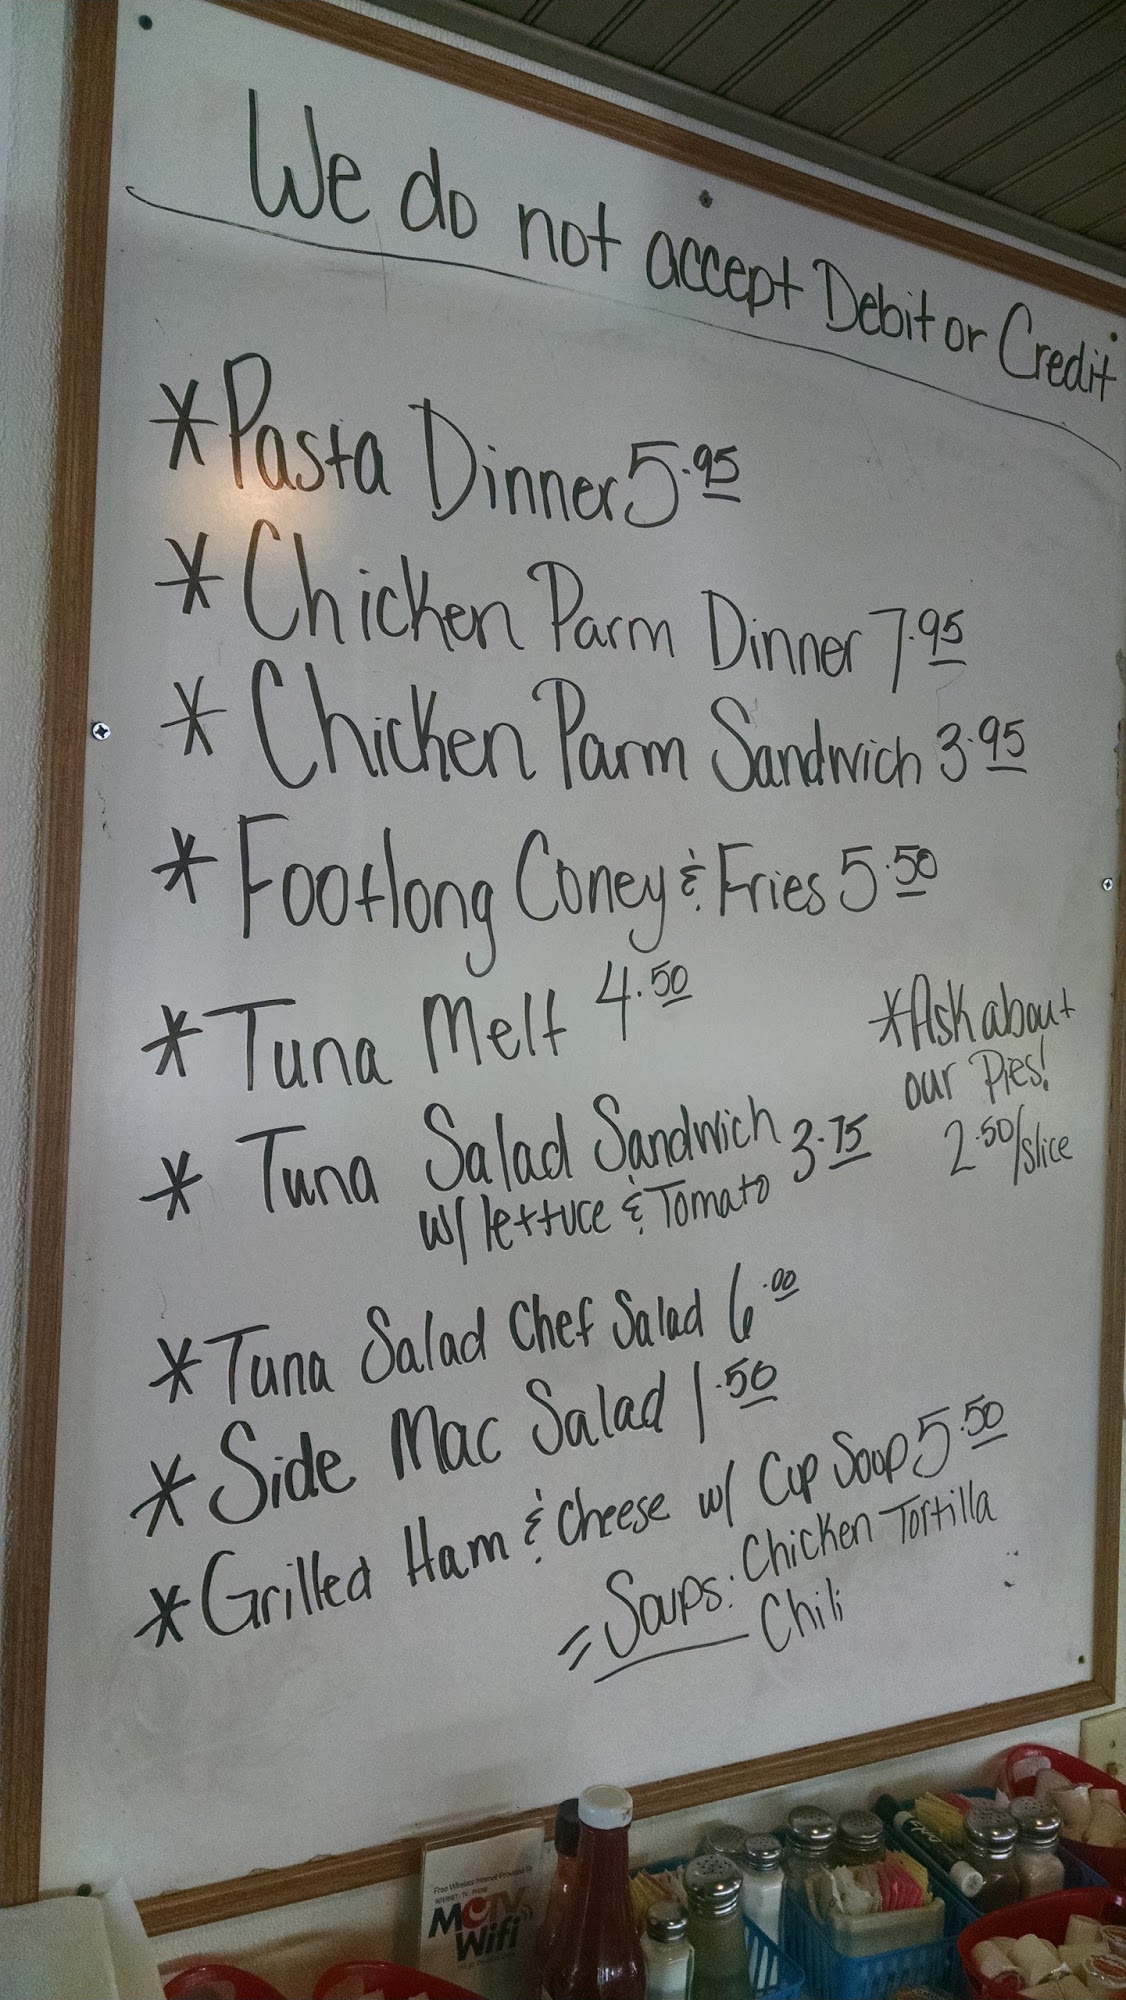 We do not accept Debit or Credit
*Pasta Dinner 5.95
*Chicken Parm Dinner 7.95
*Chicken Parm Sandwich 3.95
*Footlong Coney & Fries 5.50
*Tuna Melt 4.50
*Ask about
our Pies!
2.50/slice
*Tuna Salad Sandwich 3.75
w/ lettuce & Tomato
*Tuna Salad Chef Salad 6.00
*Side Mac Salad 1.50
*Grilled Ham & Cheese w/ Cup Soup 5.50
=Soups: Chicken Tortilla
Chili
Free Wireless Internet Provided by
MCTV
Wifi